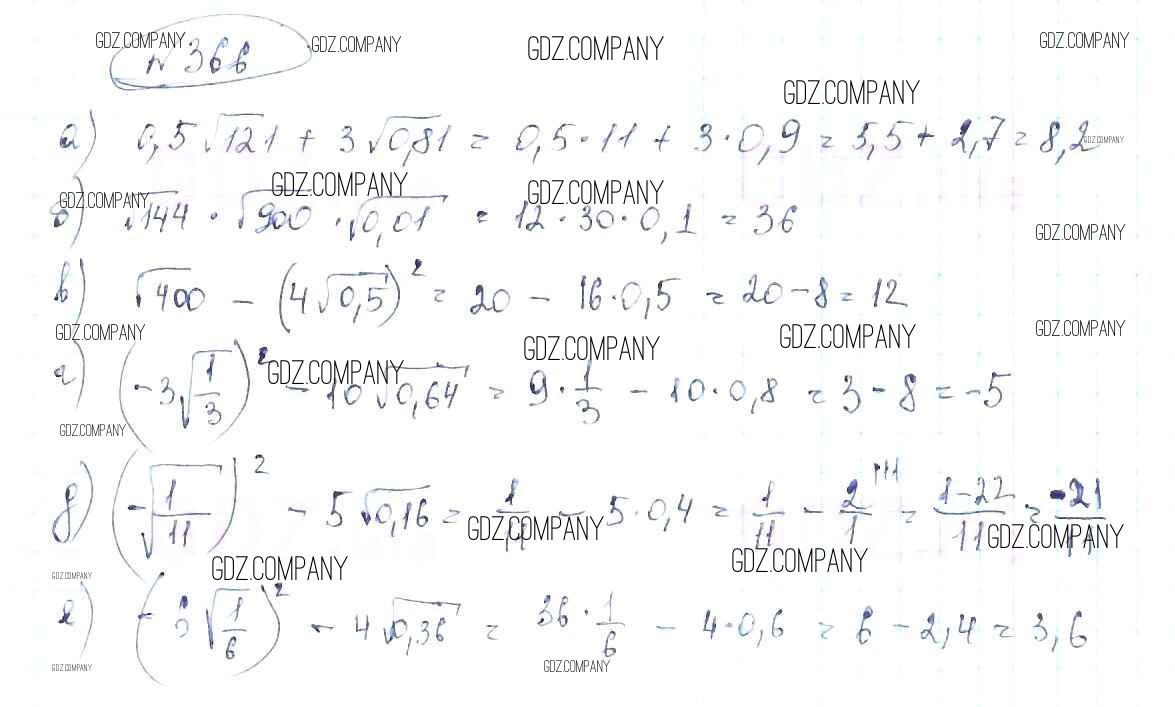 GDZ.COMPANY GDZ.COMPANY GDZ.COMPANY GDZ.COMPANY
№ 366
GDZ.COMPANY
а) 0,5√121 + 3√0,81 = 0,5·11 + 3·0,9 = 5,5 + 2,7 = 8,2 GDZ.COMPANY
GDZ.COMPANY GDZ.COMPANY GDZ.COMPANY
б) √144 · √900 · √0,01 = 12·30·0,1 = 36 GDZ.COMPANY
в) √400 − (4√0,5)² = 20 − 16·0,5 = 20 − 8 = 12
GDZ.COMPANY GDZ.COMPANY GDZ.COMPANY GDZ.COMPANY
г) (−3√1/3)² − 10√0,64 = 9·1/3 − 10·0,8 = 3 − 8 = −5
GDZ.COMPANY
GDZ.COMPANY
д) (−√1/11)² − 5√0,16 = 1/11 − 5·0,4 = 1/11 − 2/1 = 1−22/11 = −21/11
GDZ.COMPANY GDZ.COMPANY
GDZ.COMPANY GDZ.COMPANY GDZ.COMPANY
е) (−6√1/6)² − 4√0,36 = 36·1/6 − 4·0,6 = 6 − 2,4 = 3,6
GDZ.COMPANY GDZ.COMPANY